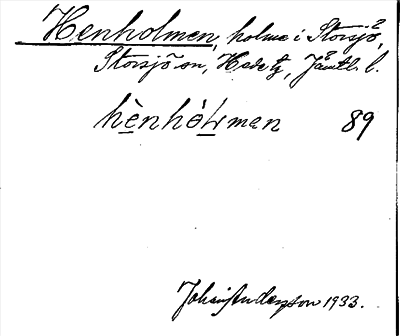 Henholmen, holme i Storsjö,
Storsjö sn, Hede tg, Jämtl. l.
hènhòLman 89
Johan Anderson 1933.